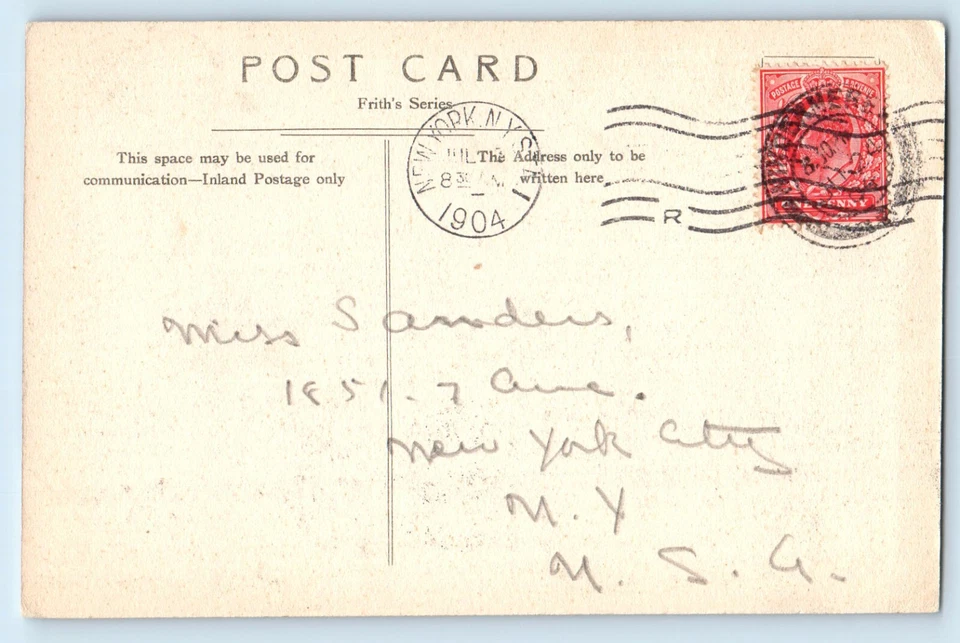 POST CARD
Frith's Series
This space may be used for
communication—Inland Postage only
The Address only to be
written here
NEW YORK, N.Y. STA
1904
R
POSTAGE & REVENUE
ONE PENNY
Miss Sanders,
1851. 7 Ave.
New York City
N. Y
U. S. A.